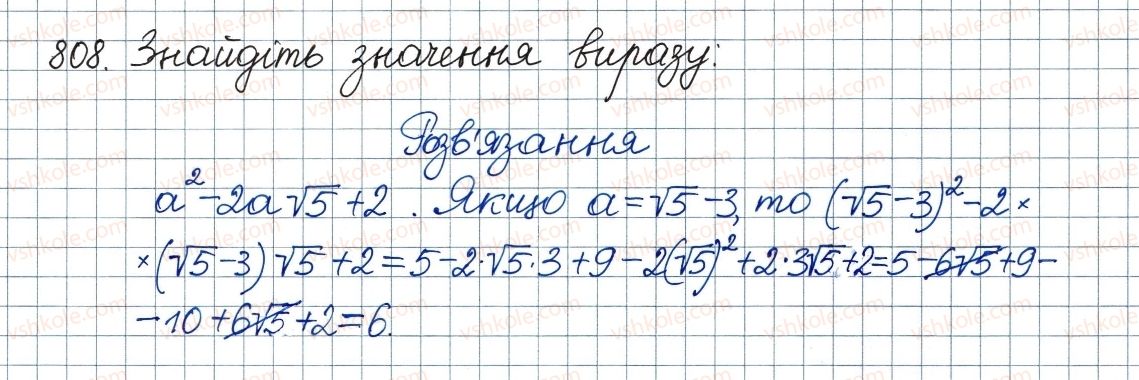 808. Знайдіть значення виразу:
Розв'язання
a² - 2a√5 + 2. Якщо a = √5 - 3, то (√5 - 3)² - 2 ×
× (√5 - 3) √5 + 2 = 5 - 2·√5·3 + 9 - 2(√5)² + 2·3√5 + 2 = 5 - 6√5 + 9 -
- 10 + 6√5 + 2 = 6.